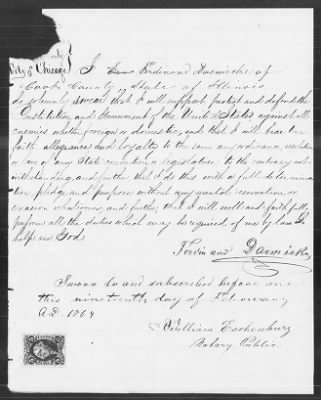 City of Chicago } I Ferdinand Darmischer of
Cook County, State of Illinois
do solemnly swear that I will support protect and defend the
Constitution and Government of the United States against all
enemies, whether foreign or domestic, and that I will bear true
faith allegiance and loyalty to the same any ordinance, resolution
or law of any State convention or legislature to the contrary not-
withstanding, and further that I do this with a full determina-
tion, pledge and purpose without any mental reservation or
evasion whatsoever, and further that I will well and faithfully
perform all the duties which may be required of me by law. So
help me God.
Ferdinand
Sworn to and subscribed before me
this nineteenth day of February
A.D. 1864
William Eschenburg
Notary Public